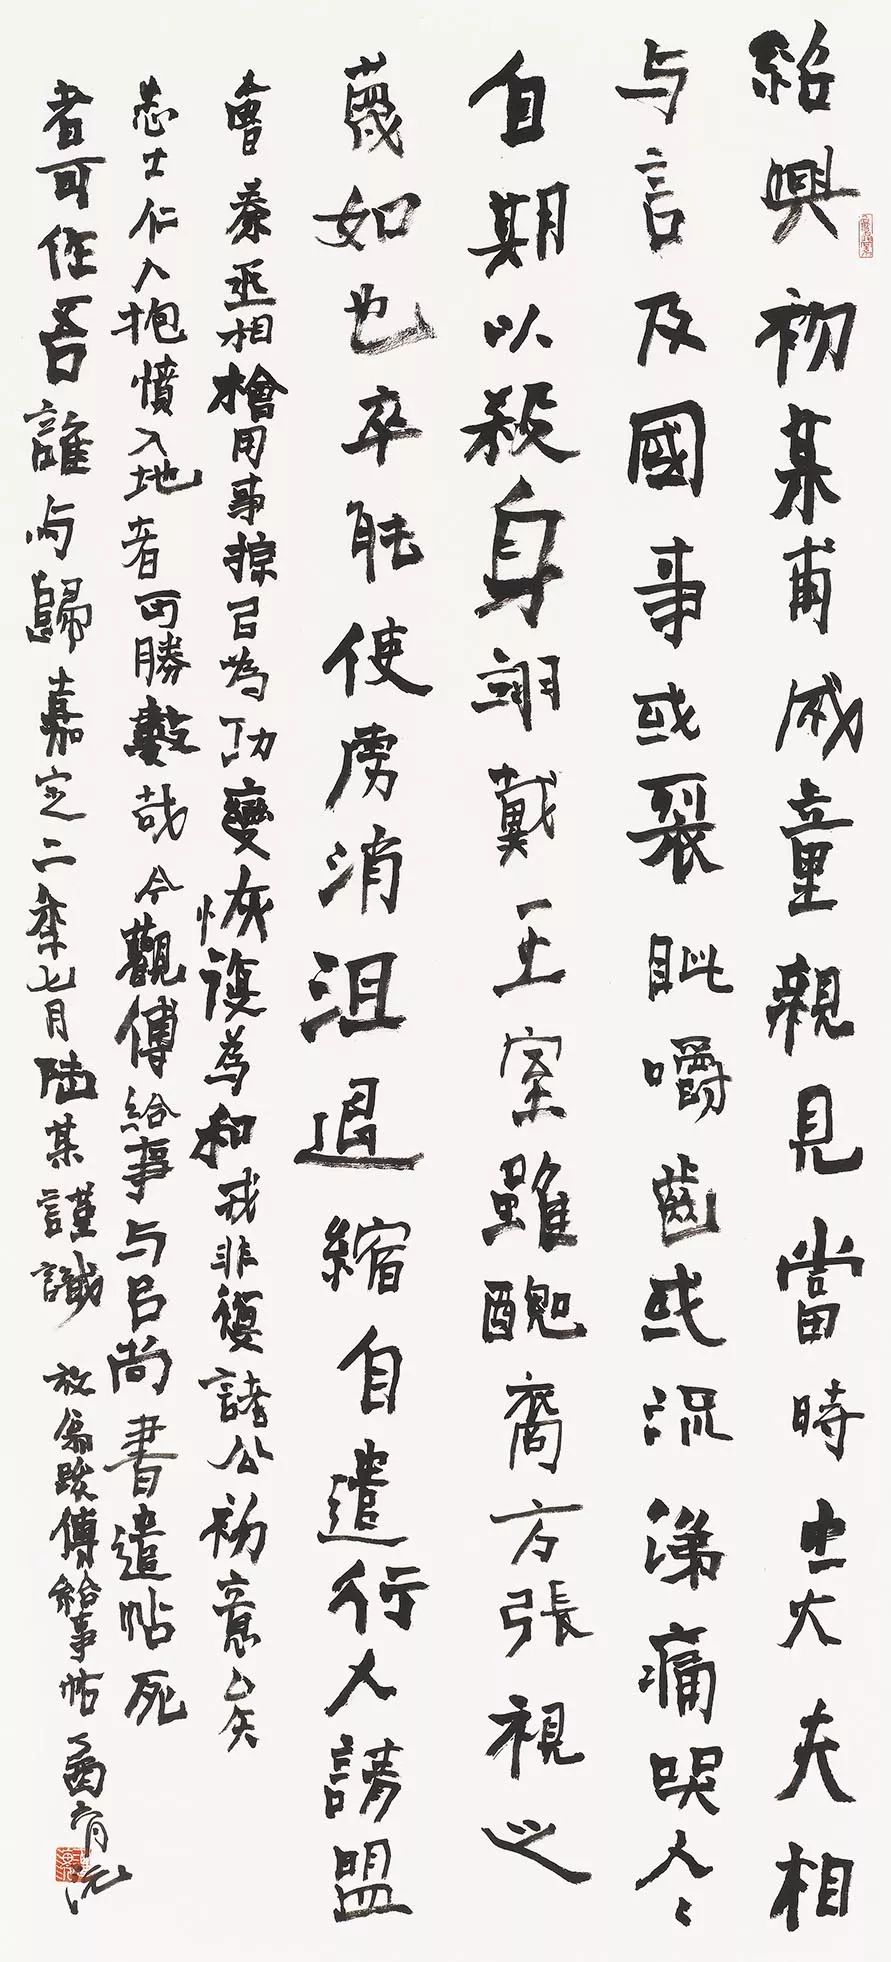 紹興初某甫成童親見當時士大夫相
与言及國事或裂眥嚼齒或流涕痛哭人〻
自期以殺身翊戴王室雖醜裔方張視之
蔑如也卒能使虜消沮退縮自遣行人請盟
會秦丞相檜用事掠己為功變恢復為和戎非復諸公初意矣
志士仁人抱憤入地者可勝數哉今觀傅給事与呂尚書遺帖死
者可作吾誰与歸嘉定二年七月陸某謹識 放翁跋傅給事帖 丁酉